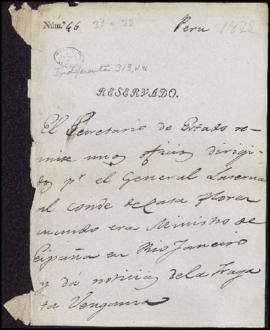 Núm.° 46
Peru 1822
Indiferente 313,
RESERVADO.
El Secretario de Estado re-
mite unos oficios dirigi-
dos pr. el General Laserna
al Conde de Casa Flores
cuando era Ministro de
España en Rio Janeiro
y dá noticias de la Fraga-
ta Venganza